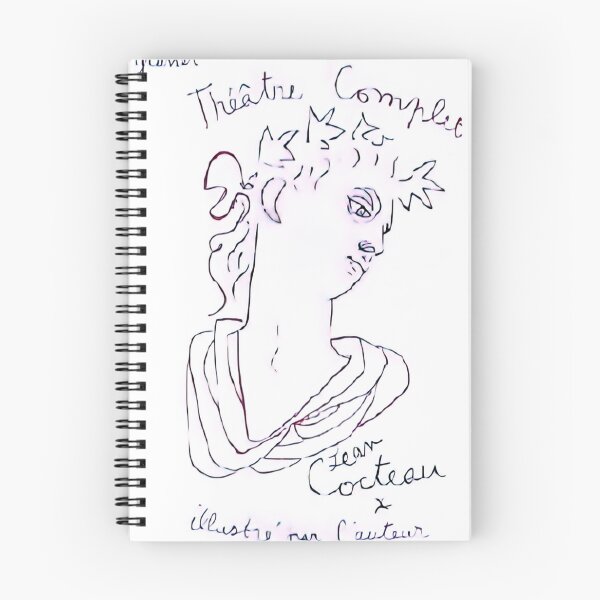 Théâtre Complet
Jean
Cocteau
x
illustré par l'auteur